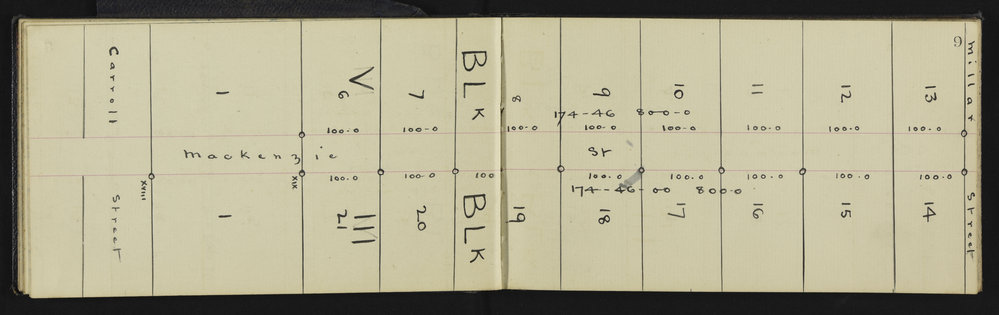 9
Carroll
Millar
BLK
V
1 6 7 8 9 10 11 12 13
174-46 800-0
100.0 100-0 100-0 100-0 100-0 100.0 100-0 100-0
Mackenzie St
100.0 100-0 100 100.0 100.0 100.0 100.0 100.0
174-46-00 800-0
XVIII XIX
1 21 20 19 18 17 16 15 14
BLK
III
Street
Street